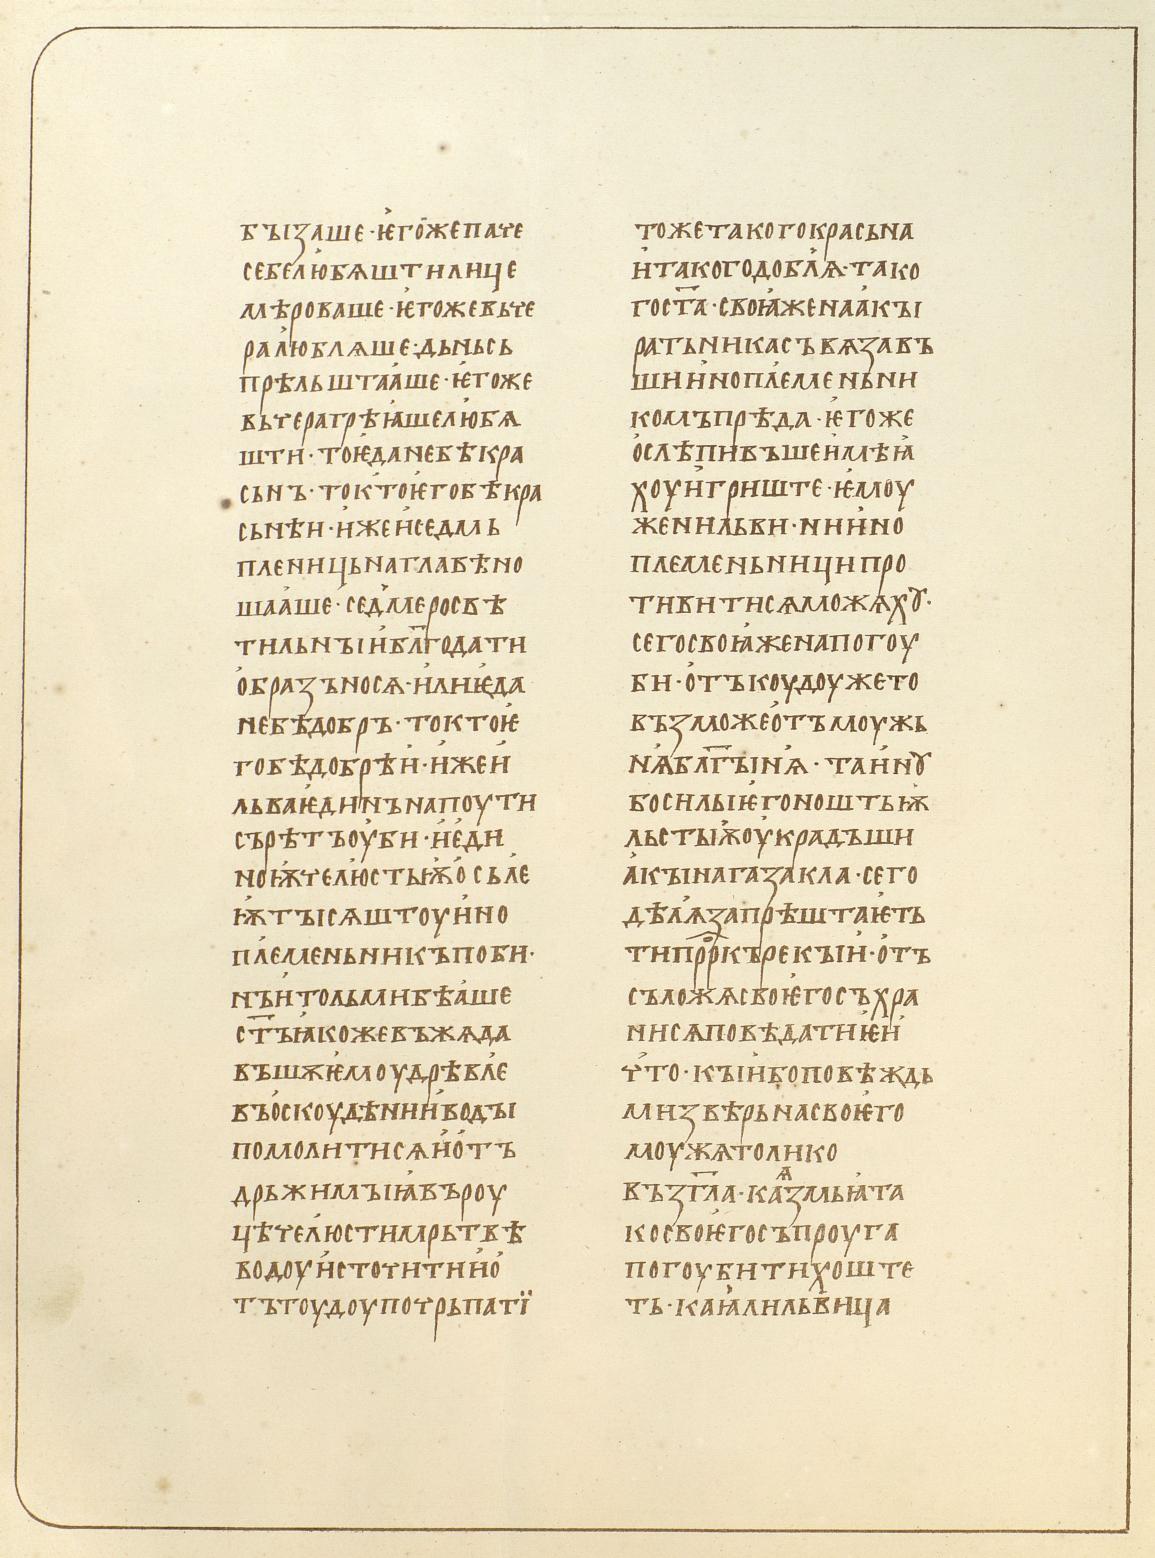 БЪІЗАШЕ·ѤГОЖЕПАЧЕ
СЕБЕЛЮБѦШТИЛИЦЕ
МѢРОВАШЕ·ѤГОЖЕВЬЧЕ
РАЛЮБЛѨШЕ·ДЬНЬСЬ
ПРѢЛЬШТААШЕ·ѤГОЖЕ
ВЬЧЕРАГРѢꙖШЕЛЮБѦ
ШТИ·ТОѤДАНЕБѢКРА
СЬНЪ·ТОКТОѤГОБѢКРА
СЬНѢИ·ИЖЕИСЕДМЬ
ПЛЕНИЦЬНАГЛАВѢНО
ШААШЕ·СЕДМЕРОСВѢ
ТИЛЬНЪІИБЛ҃ГОДАТИ
ОБРАЗЪНОСѦ·ИЛИѤДА
НЕБѢДОБРЪ·ТОКТОѤ
ГОБѢДОБРѢИ·ИЖЕИ
ЛЬВАѤДИНЪНАПОУТИ
СЪРѢТЪОУБИ·ИЕДИ
НОѬЧЕЛЮСТЬѬОСЬЛЕ
ѬТЪІСѦШТОУИНО
ПЛЕМЕНЬНИКЪПОБИ·
НЪИТОЛЬМИБѢАШЕ
СТ҃ЪꙖКОЖЕВЪЖѦДА
ВЪШЖѤМОУДРѢВЛЕ
ВЪОСКОУДѢНИИВОДЪІ
ПОМОЛИТИСѦИОТЪ
ДРЬЖИМЪІꙖВЪРОУ
ЦѢЧЕЛЮСТИМРЬТВѢ
ВОДОУИСТОЧИТИИО
ТЪТОУДОУПОЧРЬПАТЇ
ТОЖЕТАКОГОКРАСЬНА
ИТАКОГОДОБЛѨ·ТАКО
ГОСТ҃А·СВОꙖЖЕНААКЪІ
РАТЬНИКАСЪВѦЗАВЪ
ШИИНОПЛЕМЕНЬНИ
КОМЪПРѢДА·ѤГОЖЕ
ОСЛѢПИВЪШЕИМѢꙖ
ХОУИГРИШТЕ·ѤМОУ
ЖЕНИЛЬВИ·НИИНО
ПЛЕМЕНЬНИЦИПРО
ТИВИТИСѦМОЖѦХꙊ·
СЕГОСВОꙖЖЕНАПОГОУ
БИ·ОТЪКОУДОУЖЕТО
ВЪЗМОЖЕОТЪМОУЖЬ
НѦБЛ҃ГЪІНѦ·ТАИНꙊ
БОСИЛЫѤГОНОШТЬѬ
ЛЬСТЫѬОУКРАДЪШИ
АКЪІНАГАЗАКЛА·СЕГО
ДѢЛѦЗАПРѢШТАѤТЬ
ТИПРР҃КЪРЕКЪІИ·ОТЪ
СЪЛОЖѦСВОѤГОСЪХРА
НИСѦПОВѢДАТИѤИ
ЧТО·КЪІИБОПОВѢЖДЬ
МИЗВѢРЬНАСВОѤГО
МОУЖѦТОЛИКО
ВЪЗГЛ҃А·КАꙗЗМЬꙖТА
КОСВОѤГОСЪПРОУГА
ПОГОУБИТИХОШТЕ
ТЬ·КАꙖЛИЛЬВИЦА